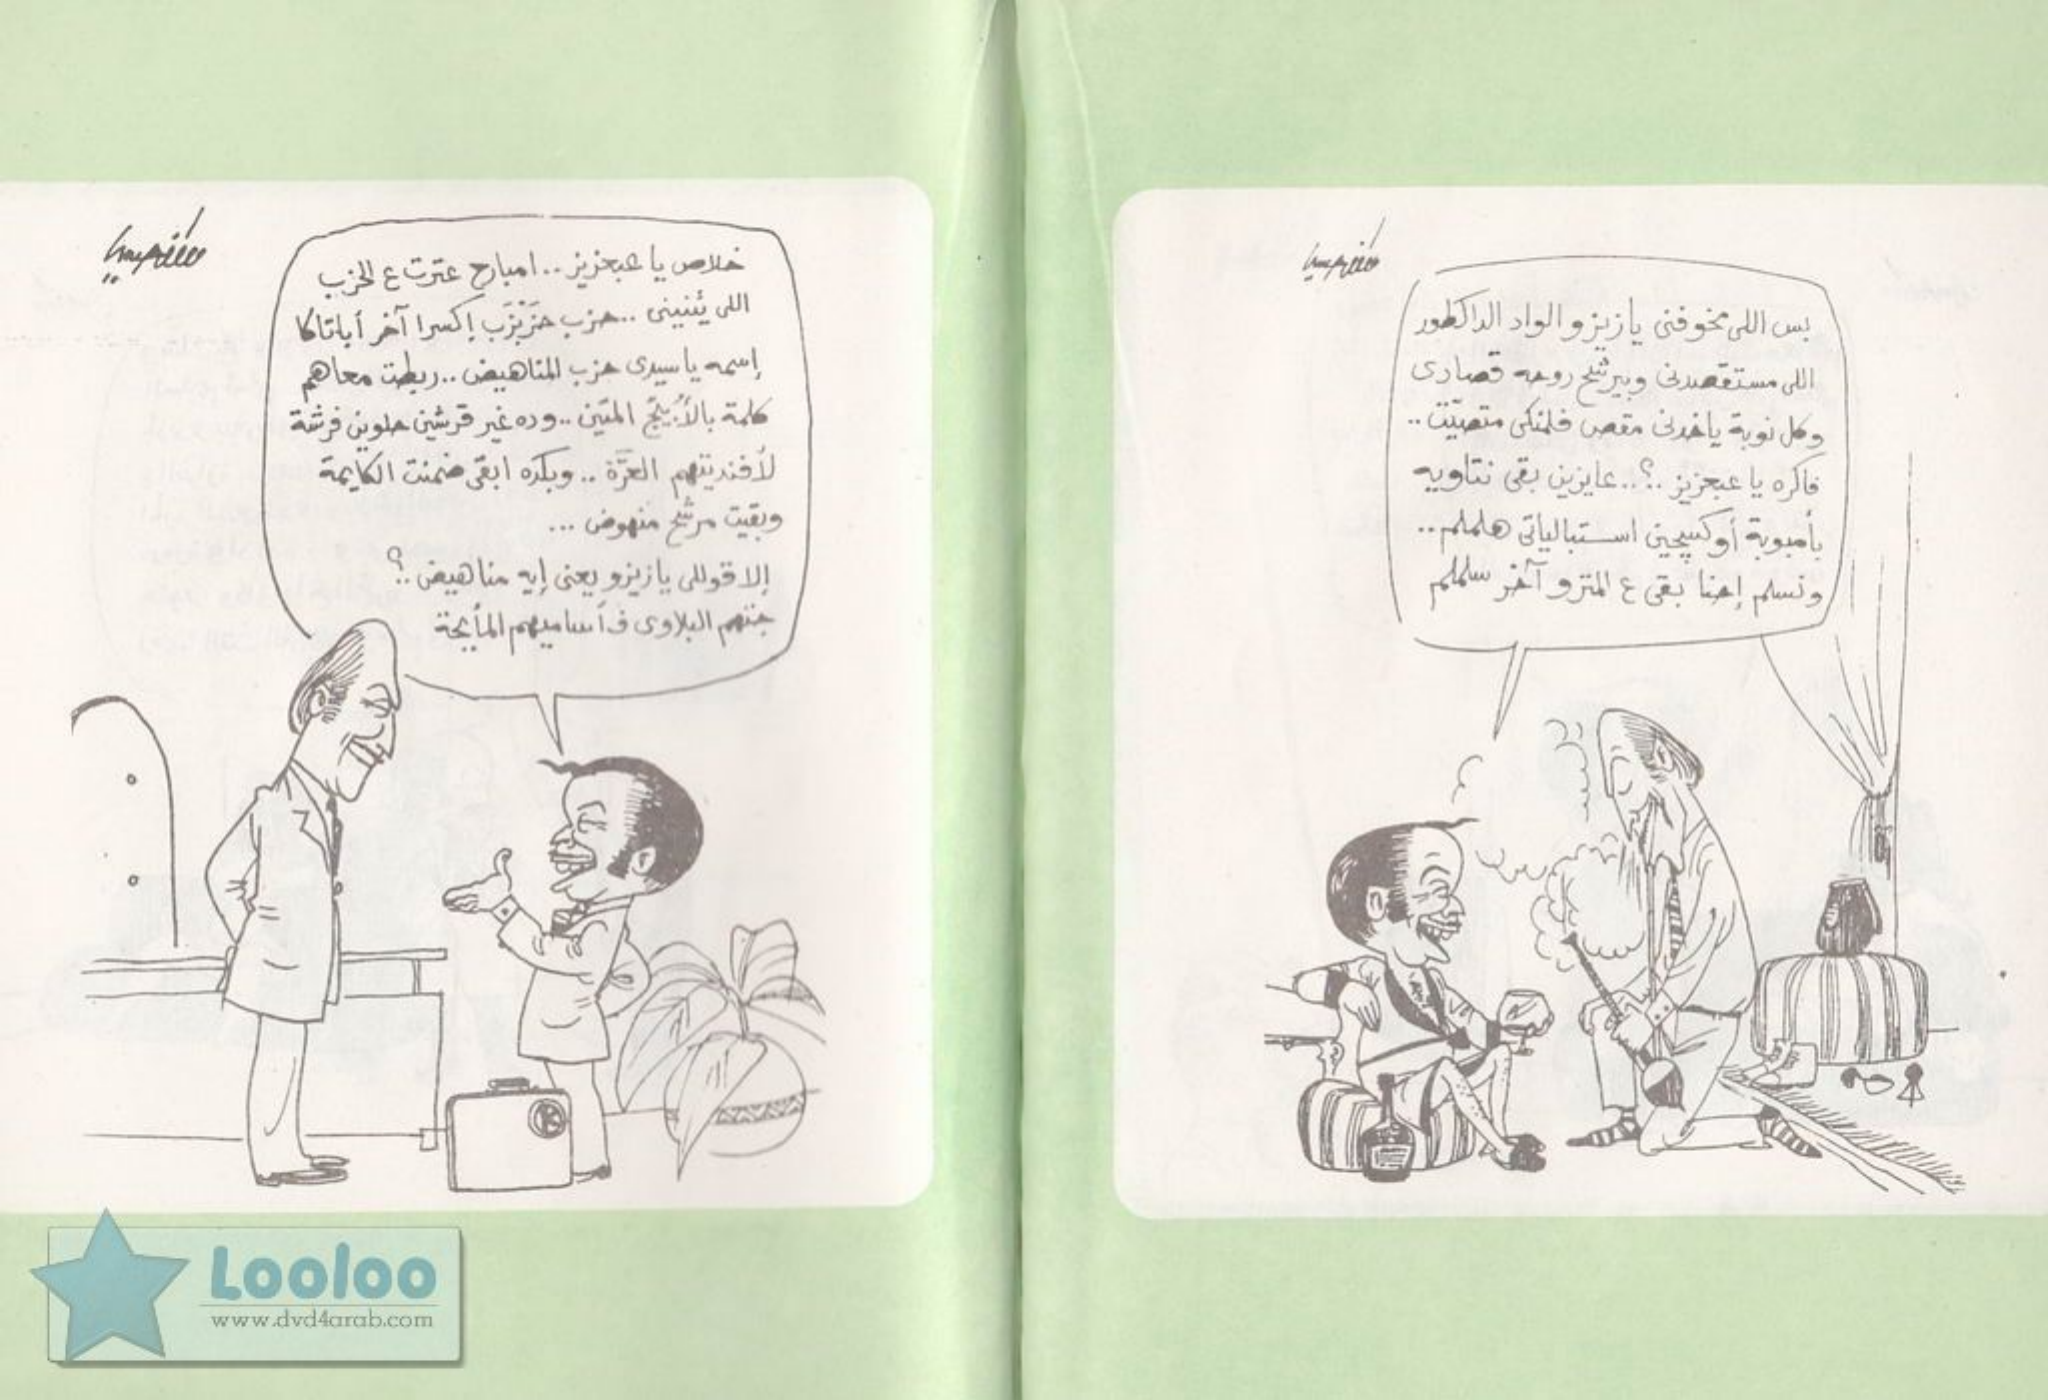 بس اللى مخوفنى يا زيزو الواد الداكطور
اللى مستقصدنى وبيرشح روحه قصادى
وكل نوبة ياخدنى مقص فلنكى متصيّت ..
فاكره يا عبعزيز ..؟.. عايزين بقى نتاويه
بأمبوبة أوكسيچين استبالياتى هلملم ..
ونسلم إحنا بقى ع المترو آخر سلملم
خلاص يا عبعزيز .. امبارح عترت ع الحزب
اللى يئنينى .. حزب حَزَنْزَب إكسرا آخر أباتاكا
إسمه يا سيدى حزب المناهيض .. ربطت معاهم
كلمة بالأُبيّج المتين .. وده غير قرشين حلوين فرشة
لأفنديتهم العَرَّة .. وبكده ابقى ضمنت الكايمة
وبقيت مرشح منهوض ...
إلا قوللى يا زيزو يعنى إيه مناهيض ..؟
جتهم البلاوى ف أساميهم المأيحة
Looloo
www.dvd4arab.com